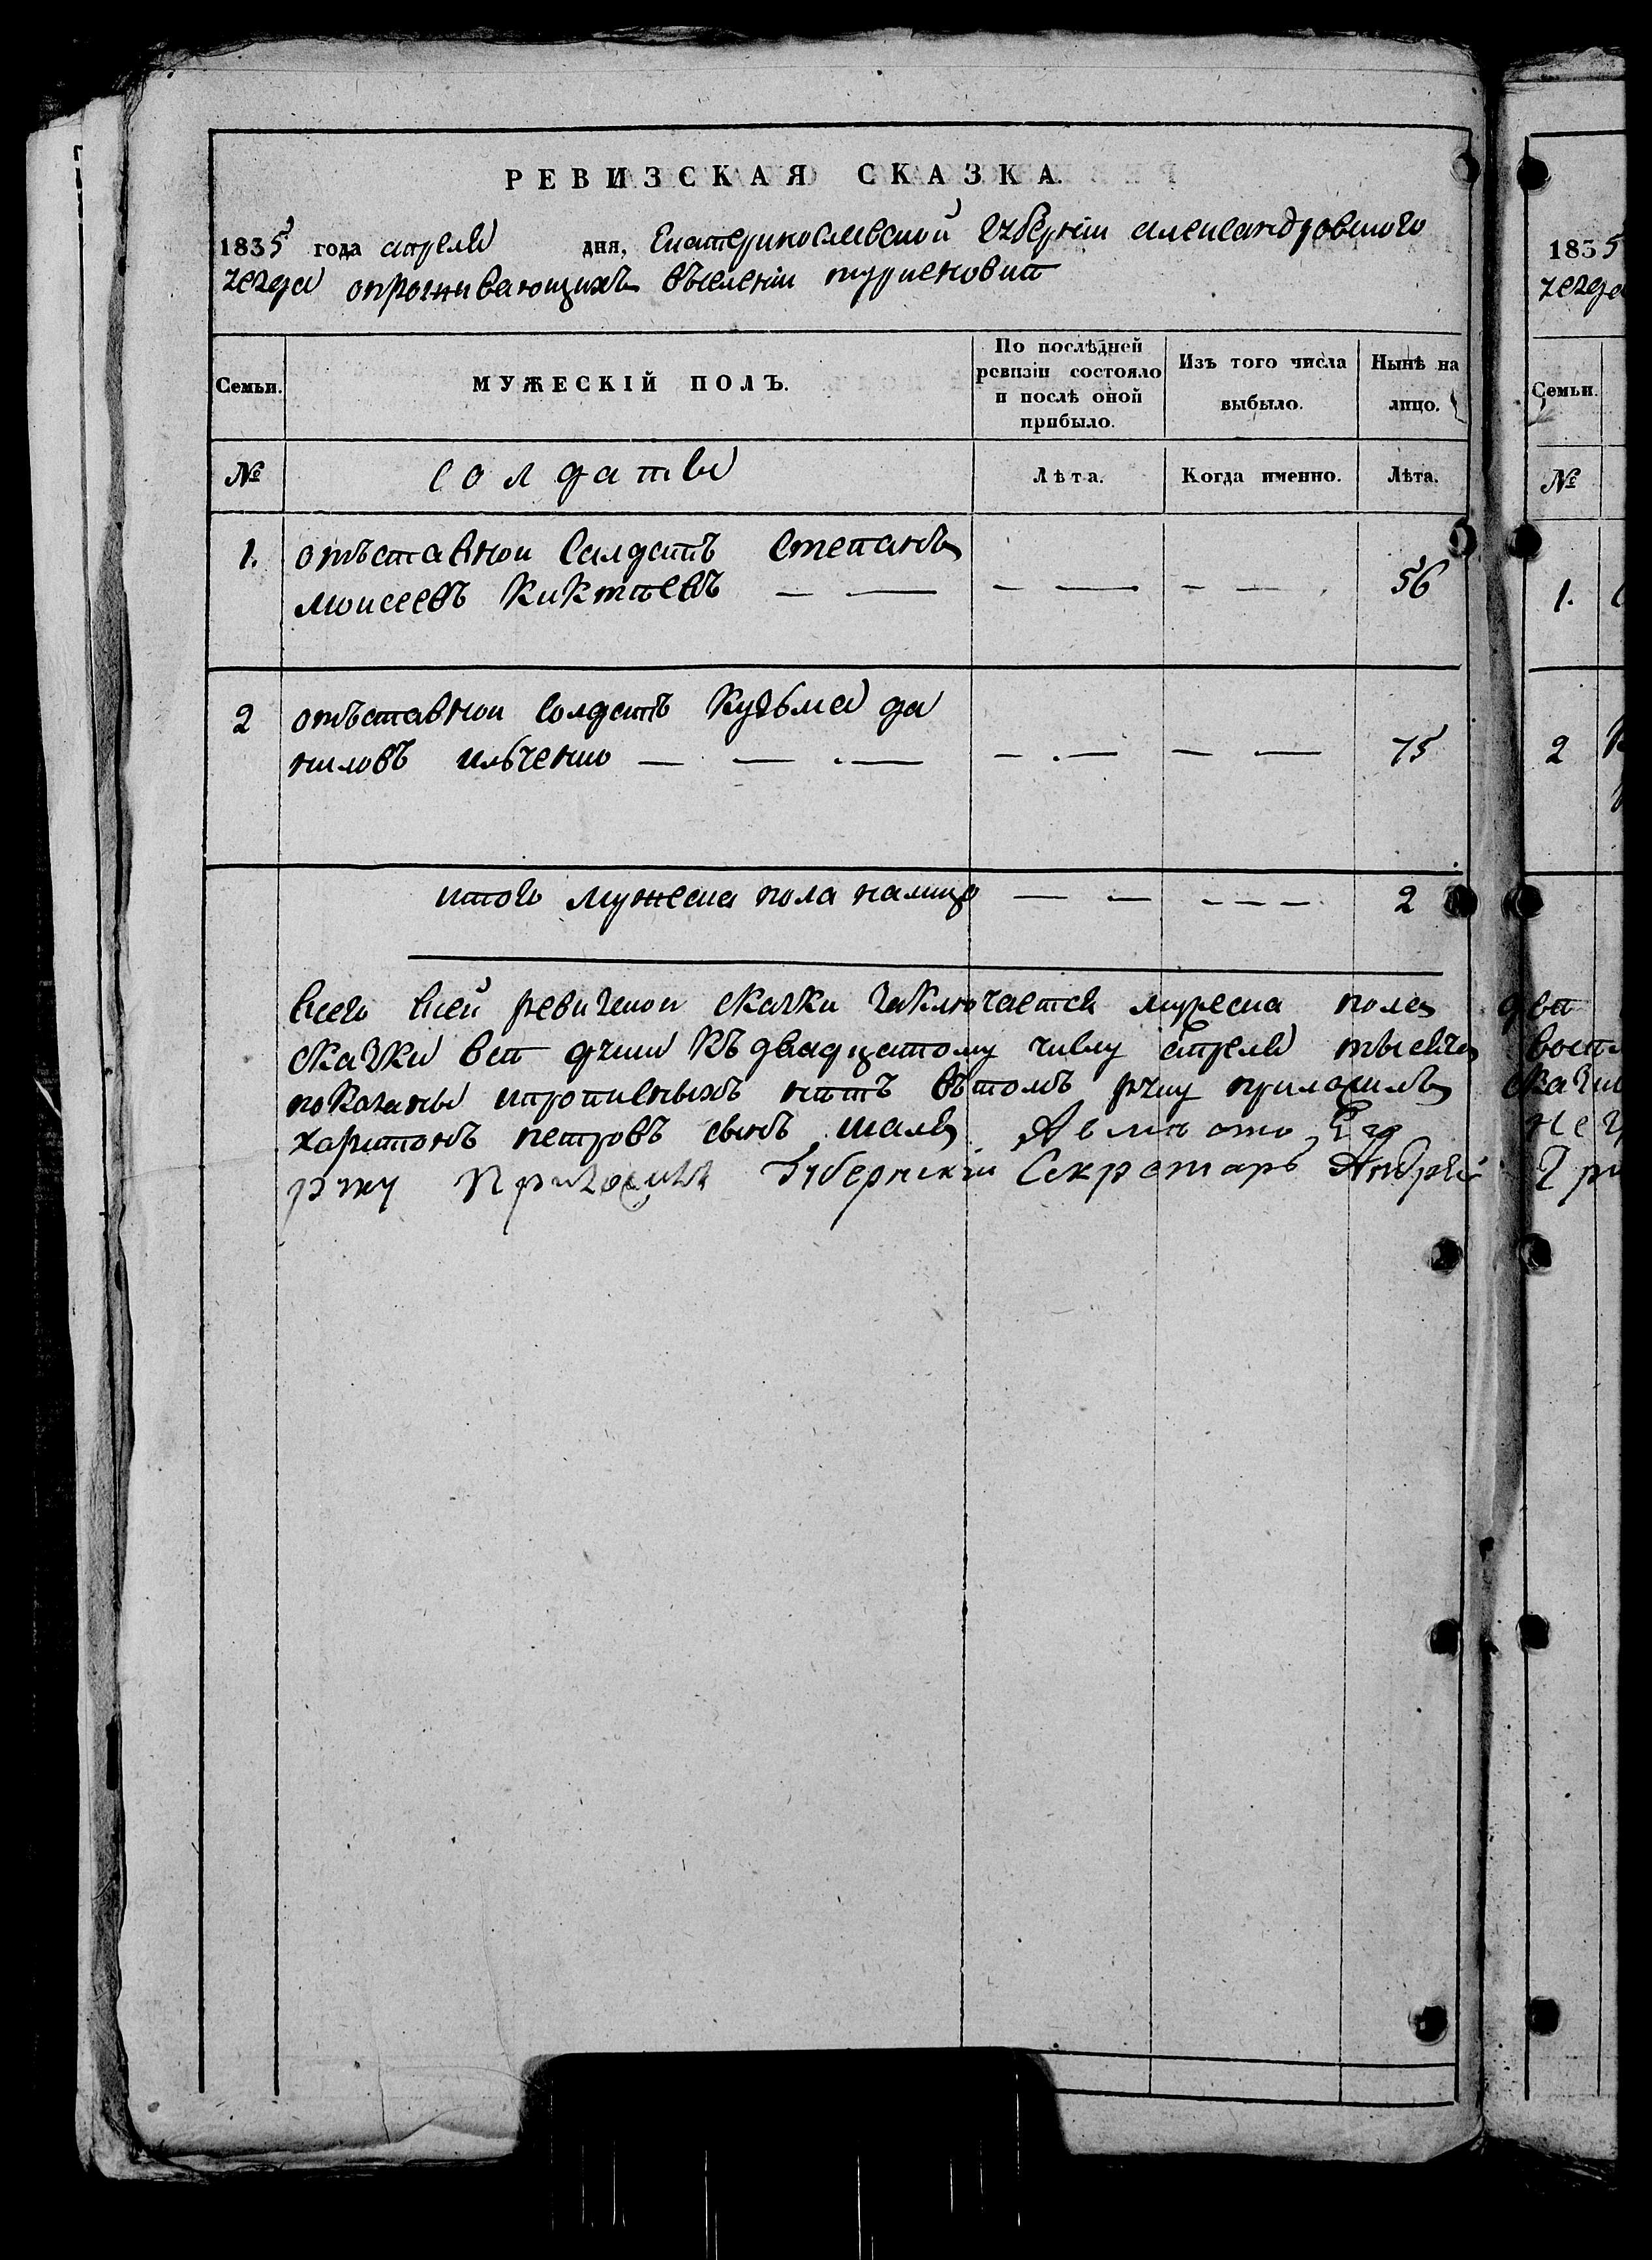 РЕВИЗСКАЯ СКАЗКА.
1835 года апреля дня, Екатеринославской губернiи александровского
уезда опроживающихъ въселенiи туркеновки
Семьи.
МУЖЕСКIЙ ПОЛЪ.
По послѣдней
ревизiи состояло
и послѣ оной
прибыло.
Изъ того числа
выбыло.
Нынѣ на
лицо.
№
солдаты
Лѣта.
Когда именно.
Лѣта.
1. отъставнои салдатъ степанъ
моисеевъ Киктевъ — — — — — — 56
2 отъставнои солдатъ Кузьма да
ниловъ ильченко — — — — — — — 75
итого мужеска пола налицо — — — — — 2
всего всей ревизкои сказки заключается мужеска пола
сказки все души Къ двадцатому числу апреля тысеча
показаны нѣтъ вътомъ руку приложилъ
харитонъ петровъ сынъ шаля А вмѣсто Его
руку Приложилъ Губернскiи Секретарь Андрей
1835
уезда
Семьи.
№
1.
2
две
сказки